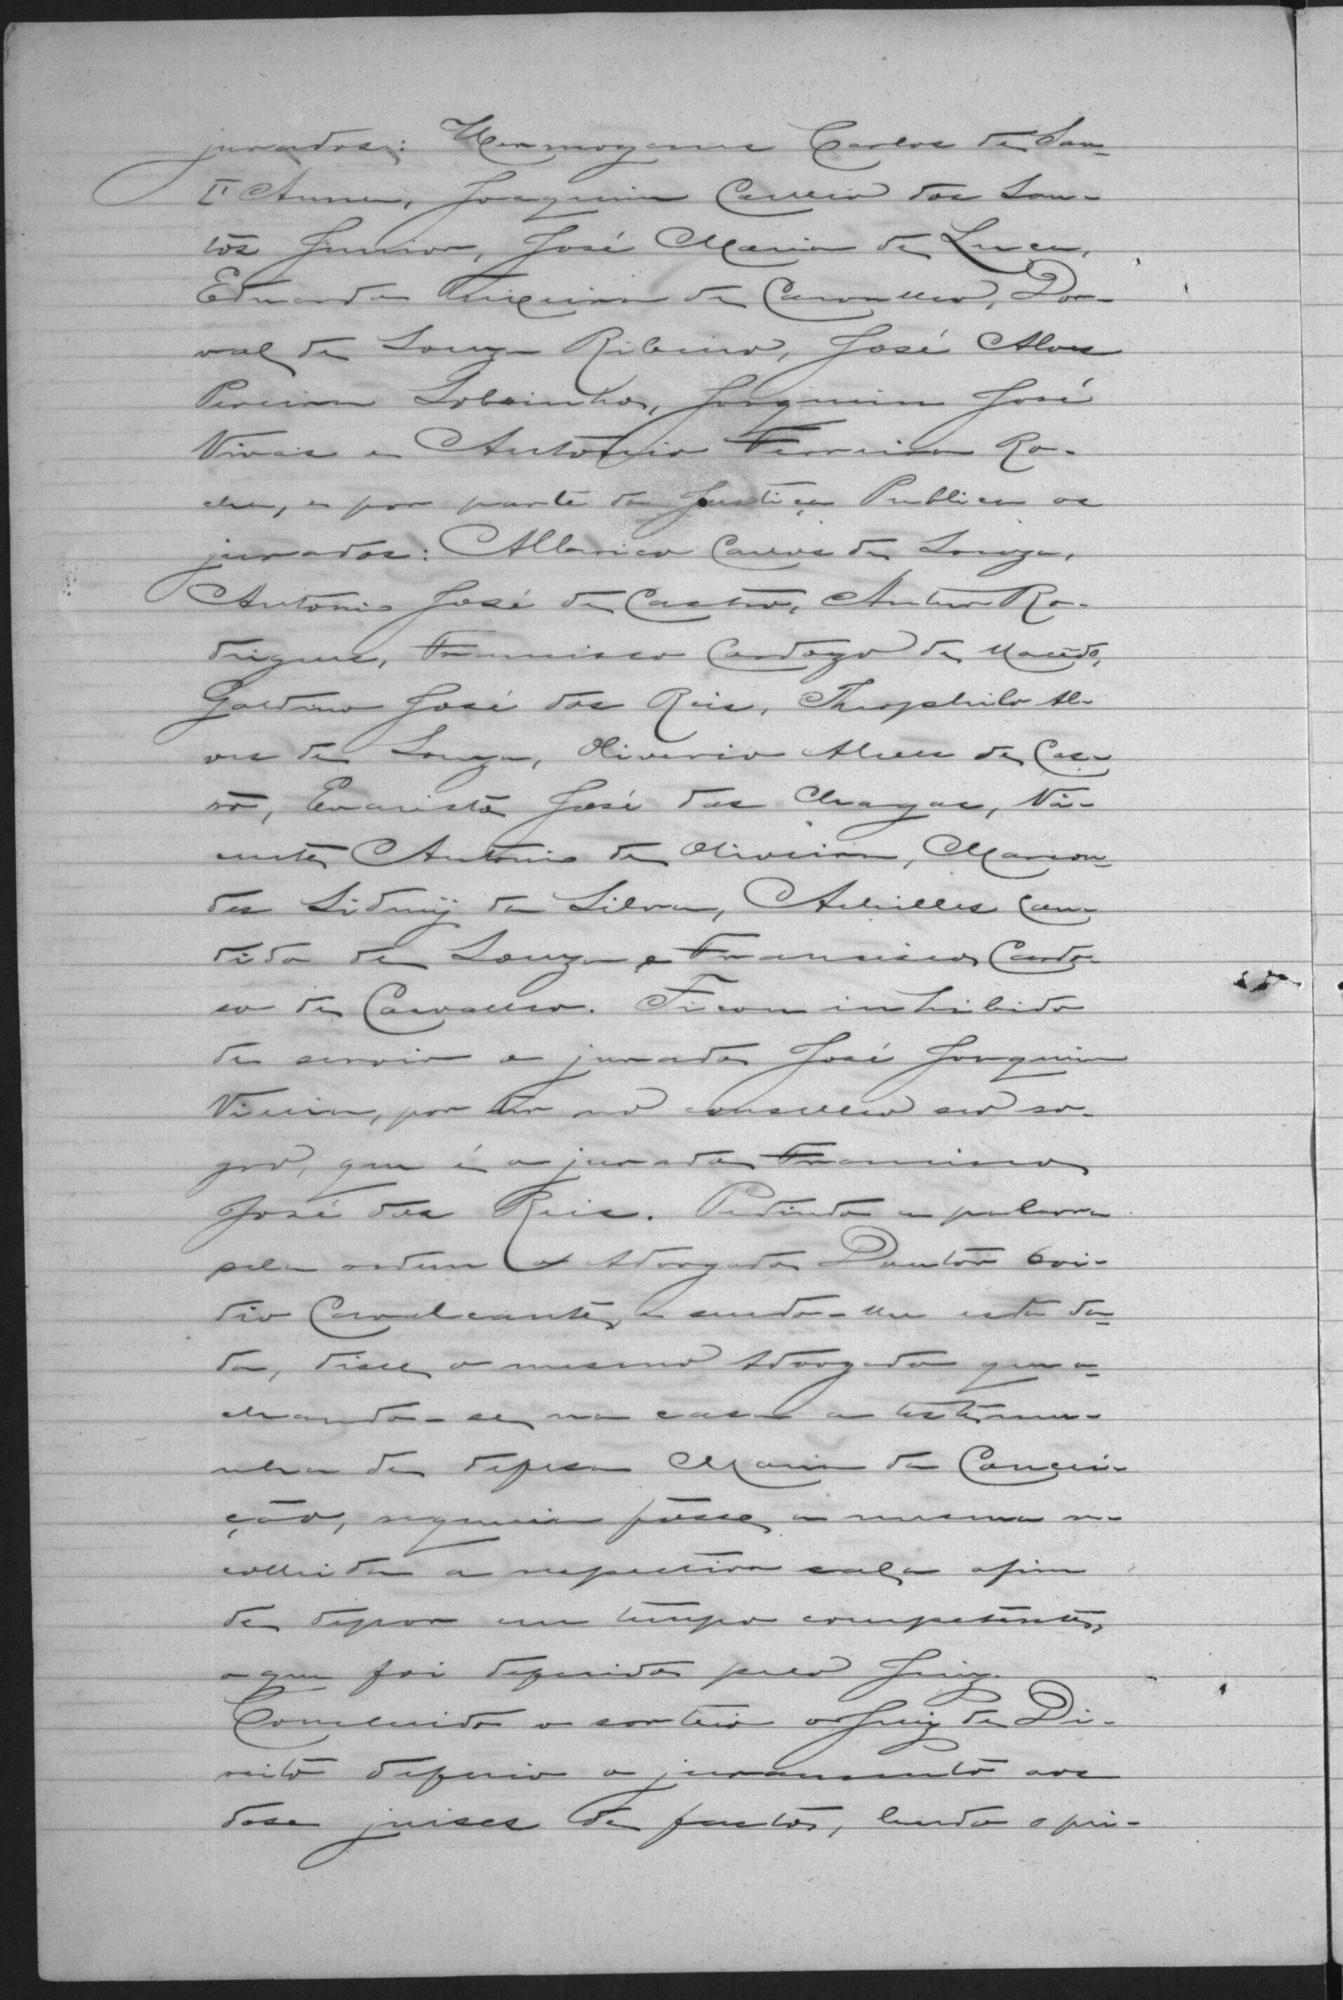 jurados: Hermogenes Carlos de San-
t'Anna, Joaquim Carlos dos San-
tos Junior, José Maria de Luca,
Eduardo Teixeira de Carvalho, Dor-
val de Souza Ribeiro, José Alves
Pereira Sobrinho, Joaquim José
Vivas e Antonio Ferreira Ro-
cha, e por parte da Justiça Publica os
jurados: Alberico Carlos de Souza,
Antonio José de Castro, Arthur Ro-
drigues, Francisco Cardozo de Macedo,
Galdino José dos Reis, Theophilo Al-
ves de Souza, Oliverio Alves de Cas-
tro, Evaristo José das Chagas, Vi-
cente Antonio de Oliveira, Marcon-
des da Silva, Achilles Can-
dido de Souza e Francisco Cardo-
so de Carvalho. Ficou inhibido
de servir o jurado José Joaquim
Vieira, por ter no conselho seo so-
gro, que é o jurado Francisco
José dos Reis. Pedindo a palavra
pela ordem o Advogado Doutor Ovi-
dio Cavalcante, e sendo-lhe esta da-
da, disse o mesmo Advogado que a-
chando-se na casa a testemu-
nha de defesa Maria da Concei-
ção, requeria fosse a mesma re-
colhida a respectiva sala afim
de depor em tempo competente,
o que foi deferido pelo Juiz.
Concluido o sorteio o Juiz de Di-
reito deferio o juramento aos
dose juises de facto, lendo o pri-